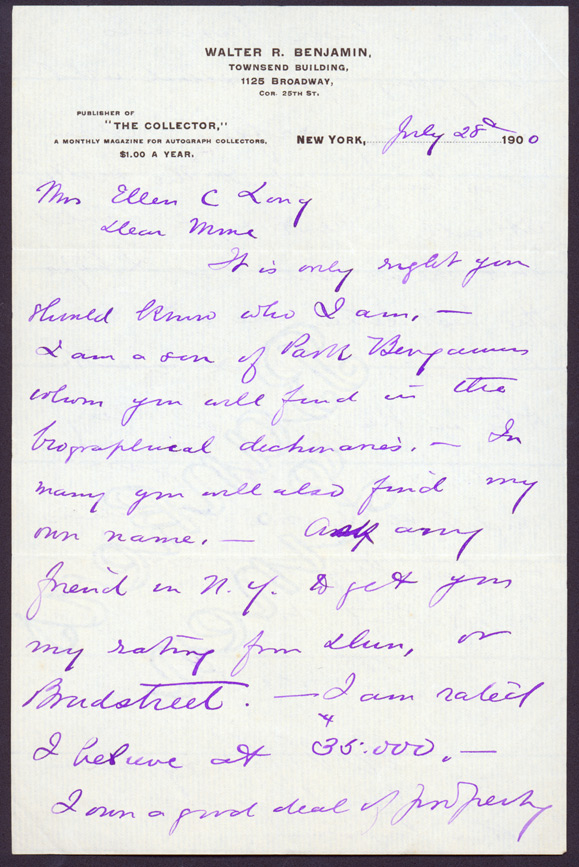 WALTER R. BENJAMIN,
TOWNSEND BUILDING,
1125 BROADWAY,
COR. 25TH ST.
PUBLISHER OF
"THE COLLECTOR,"
A MONTHLY MAGAZINE FOR AUTOGRAPH COLLECTORS,
$1.00 A YEAR.
NEW YORK, July 28th 1900
Mrs Ellen C Long
Dear Mme
It is only right you
should know who I am, —
I am a son of Park Benjamin
whom you will find in the
biographical dictionaries. — In
many you will also find my
own name. — Ask any
friend in N. Y. to get you
my rating from Dun, or
Bradstreet. — I am rated
I believe at $35.000. —
I own a good deal of property